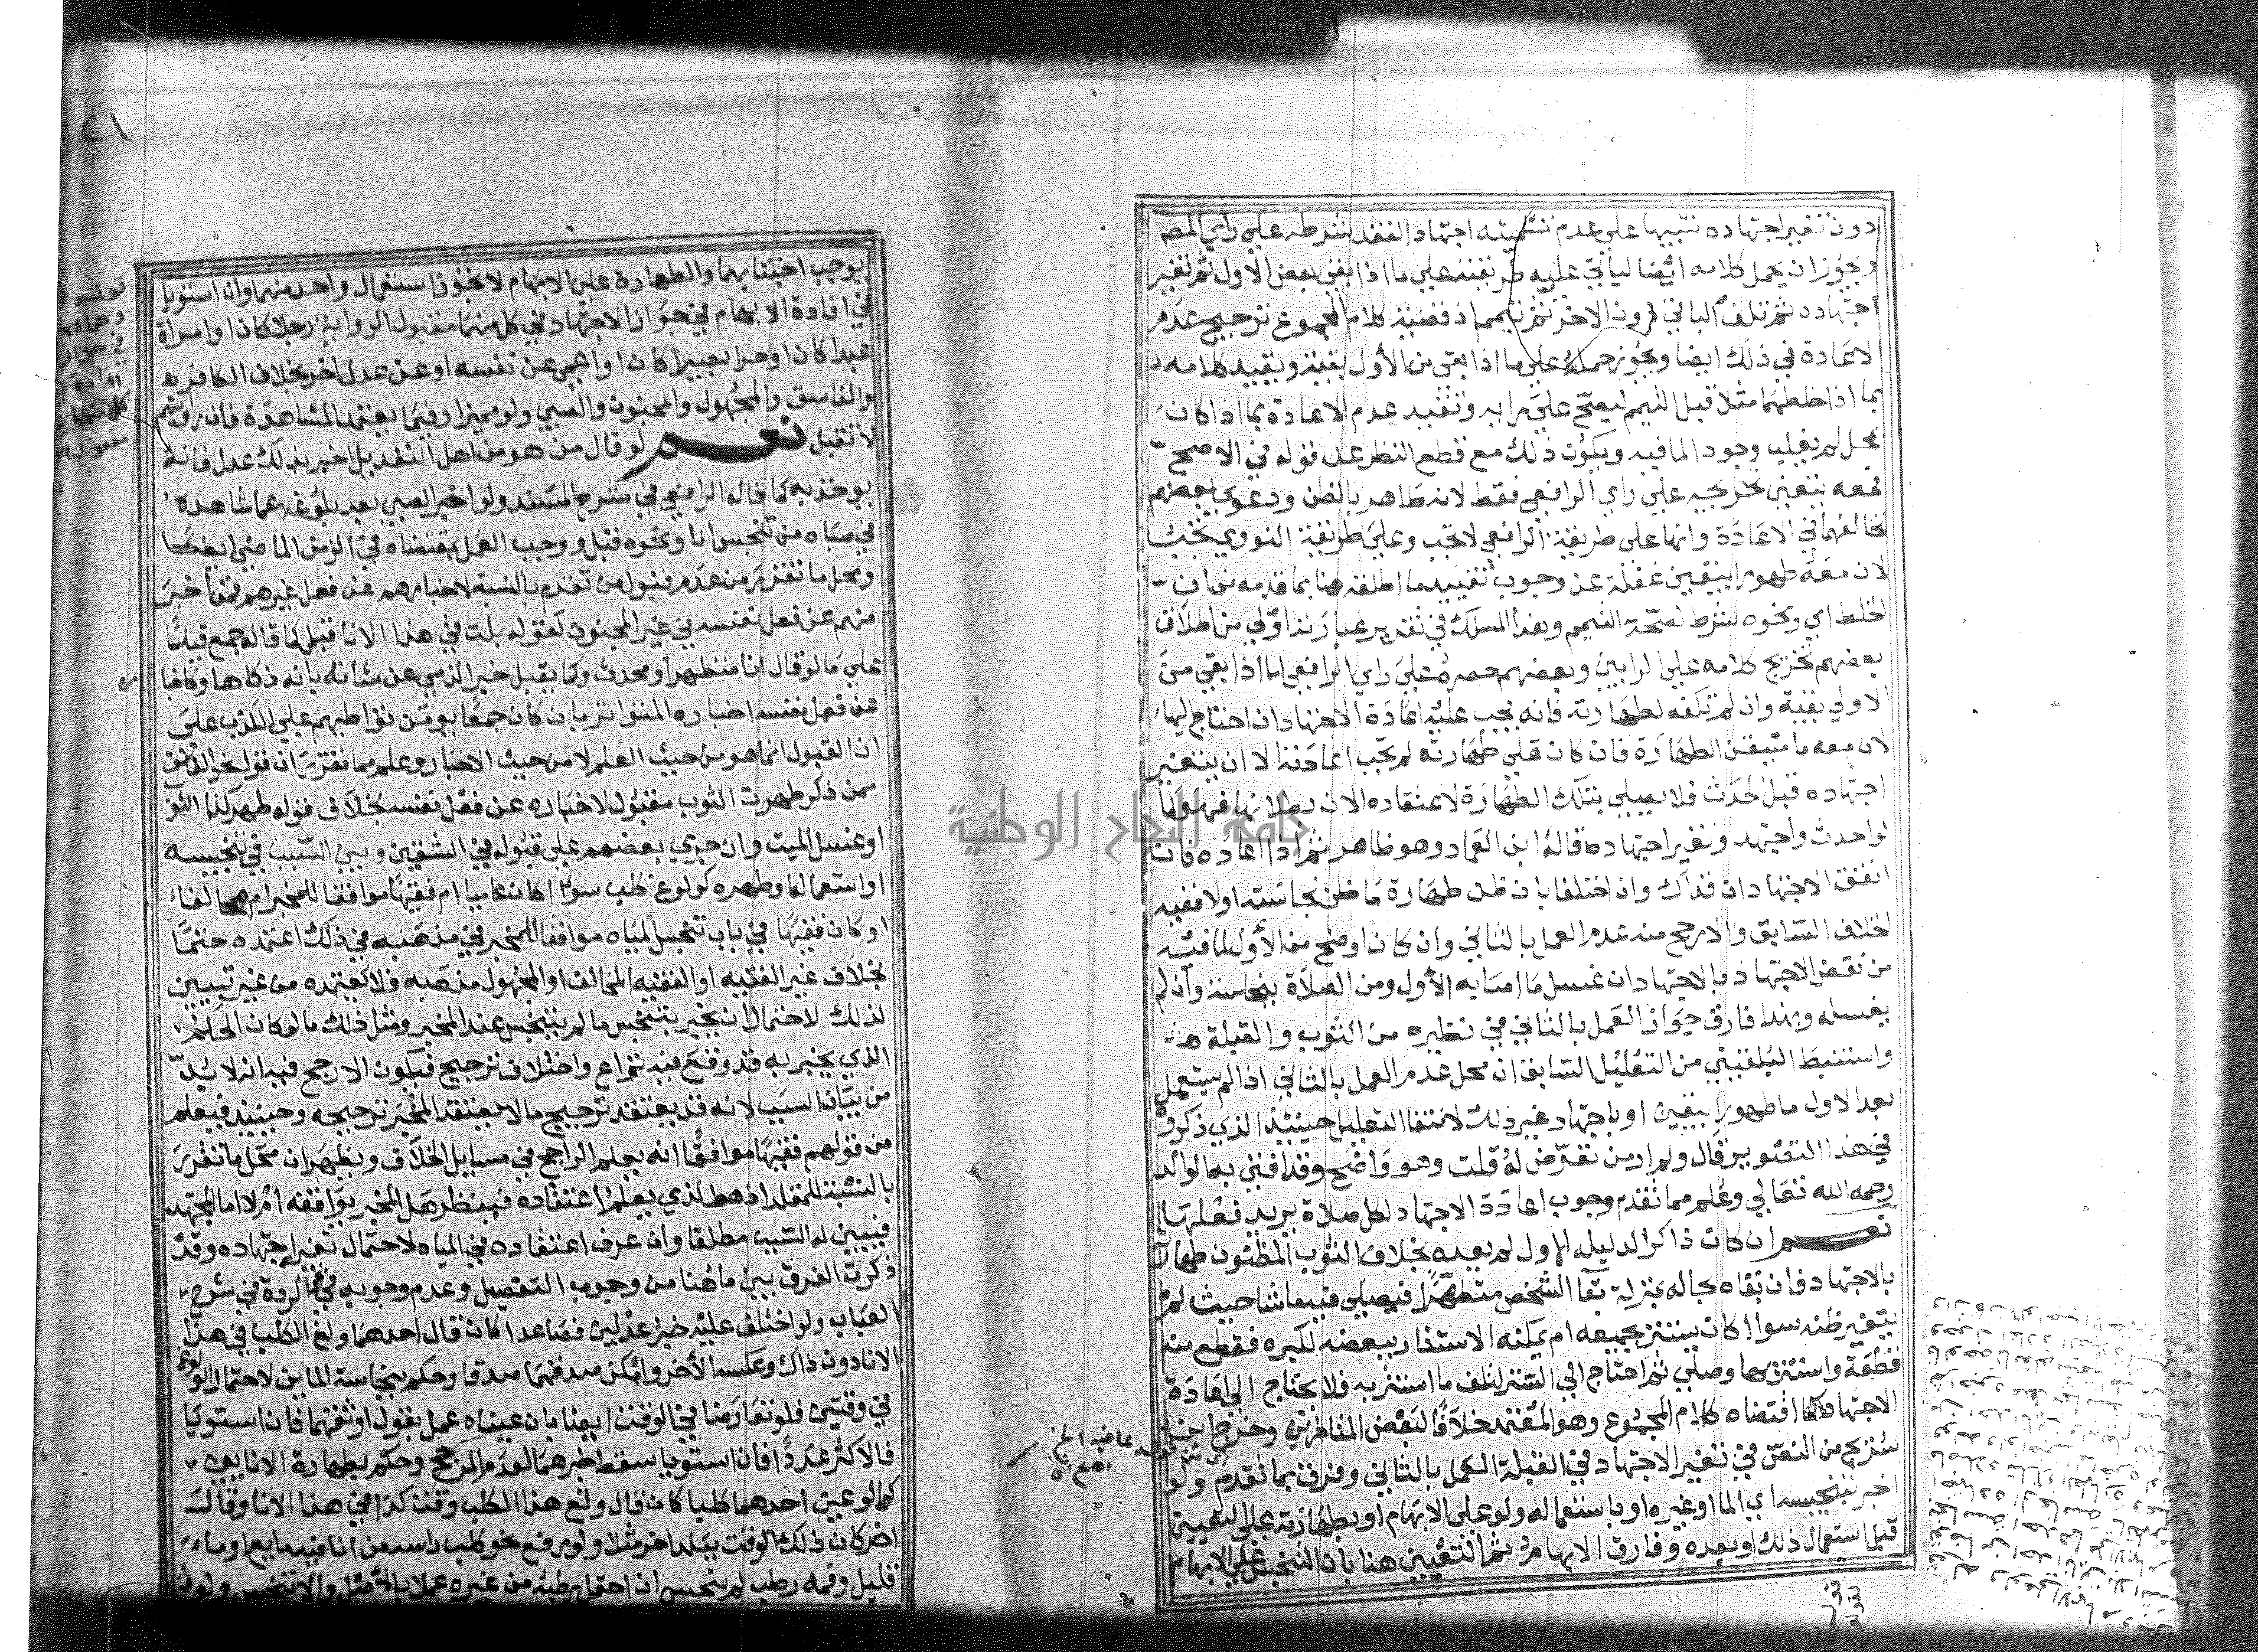 دون تغير اجتهاده تنبيها على عدم تسميته اجتهادا لفقد شرطه على راي المص
ويجوز ان يحمل كلامه ايضا لياتي على طريقته على ما اذا بقي بعض الاول ثم تغير
اجتهاده ثم تلف الباقي دون الاخر ثم تيمم اذ قضية كلام المجموع ترجيح عدم
الاعادة في ذلك ايضا ويجوز حمله على ما اذا بقي من الأول بقية وتقييد كلامه
بما اذا خلطهما مثلا قبل التيمم ليصح على رايه وتقييد عدم الاعادة بما اذا كان
بمحل لم يغلب وجود الما فيه ويكون ذلك مع قطع النظر عن قوله في الاصح
فمعه يتعين تخريجه على راي الرافعي فقط لانه ظاهر بالظن ودعوى بعضهم
تخالفهما في الاعادة وانها على طريقة الرافعي لا تجب وعلى طريقة النووي تجب
لان معه طهورا بيقين غفلة عن وجوب تقييد ما اطلقه هنا بما قدمه من ان
الخلط اي ونحوه شرط لصحة التيمم وهذا المسلك في تقدير عبارته اولى من اطلاق
بعضهم تخريج كلامه على الرايين وبعضهم حصره على راي الرافعي اما اذا بقي من
الاولى بقية وان لم تكفه لطهارته فانه يجب عليه اعادة الاجتهاد ان احتاج اليها
لان معه ما متيقن الطهارة فان كان على طهارته لم تجب اعادته الا ان يتغير
اجتهاده قبل الحدث فلا يصلي بتلك الطهارة لاعتقاده الان بطلانها فهو كما
لو احدث واجتهد وتغير اجتهاده قاله ابن العماد وهو ظاهر ثم اذا اعاده فان
اتفق الاجتهادان فذاك وان اختلفا بان ظن طهارة ما ظن نجاسته اولا ففيه
الخلاف السابق والارجح منه عدم العمل بالثاني وان كان اوضح من الأول لما فيه
من نقض الاجتهاد بالاجتهاد ان غسل ما اصابه الأول ومن الصلاة بنجاسة وان لم
يغسله وبهذا فارق جواز العمل بالثاني في نظيره من الثوب والقبلة
واستنبط البلقيني من التعليل السابق ان محل عدم العمل بالثاني اذا لم يستعمل
بعد الاول ما طهورا بيقين او باجتهاد غير ذلك لانتفا التعليل حينئذ الذي ذكروه
في هذا التصوير قال ولم ار من تعرض له قلت وهو واضح وقد افتى به الوالد
رحمه الله تعالى وعلم مما تقدم وجوب اعادة الاجتهاد لكل صلاة يريد فعلها
نعم ان كان ذاكرا لدليله الاول لم يعده بخلاف الثوب المظنون طهارته
بالاجتهاد فان بقاه بحاله بمنزلة بقا الشخص متطهرا فيصلي فيه ما شا حيث لم
يتغير ظنه سوا كان يستتر بجميعه ام يمكنه الاستتار ببعضه لكبره فقطع منه
قطعة واستتر بها وصلى ثم احتاج الى الستر لتلف ما استتر به فلا يحتاج الى اعادة
الاجتهاد كما اقتضاه كلام المجموع وهو المعتمد خلافا لبعض المتاخرين وخرج ابن
سريج من النص في تغير الاجتهاد في القبلة العمل بالثاني وفرق بما تقدم ولو
اخبر بتنجيسه اي الما او غيره او باستعماله ولو على الابهام او بطهارته على التعيين
قبل استعمال ذلك او بعده وفارق الابهام ثم التعيين هنا بان التنجس على الابهام
٢١
يوجب اجتنابهما والطهارة على الابهام لا تجوز استعمال واحد منهما وان استويا
في افادة الابهام في جواز الاجتهاد في كل منهما مقبول الرواية رجلا كان او امراة
عبدا كان او حرا بصيرا كان او اعمى عن نفسه او عن عدل اخر بخلاف الكافر
والفاسق والمجهول والمجنون والصبي ولو مميزا وفيما يعتمد المشاهدة فان روايتهم
لا تقبل نعم لو قال من هو من اهل التعديل اخبرني بذلك عدل فانه
يوخذ به كما قاله الرافعي في شرح المسند ولو اخبر الصبي بعد بلوغه عما شاهده
في صباه من تنجس انا ونحوه قبل ووجب العمل بمقتضاه في الزمن الماضي ايضا
ومحل ما تقرر من عدم قبول من تقدم بالنسبة لاخبارهم عن فعل غيرهم فمن اخبر
منهم عن فعل نفسه في غير المجنون كقوله بلت في هذا الانا قبل كما قاله جمع قياسا
على ما لو قال انا متطهر او محدث وكما يقبل خبر الذمي عن شاته بانه ذكاها وكاخبا
عن فعل نفسه اخباره المتواتر بان كان جمعا يومن تواطيهم على الكذب على
ان القبول انما هو من حيث العلم لا من حيث الاخبار وعلم مما تقرر ان قول نحو الفاسق
ممن ذكر طهرت الثوب مقبول لاخباره عن فعل نفسه بخلاف قوله طهر كذا الثو
او غسل الميت وان جرى بعضهم على قبوله في الشقين وبين السبب في تنجيسه
او استعماله او طهره كولوغ كلب سوا اكان عاميا ام فقيها موافقا للمخبر ام مخالفا
او كان فقيها في باب تنجس المياه موافقا للمخبر في مذهبه في ذلك اعتمده حتما
بخلاف غير الفقيه او الفقيه المخالف او المجهول مذهبه فلا يعتمده من غير تبيين
لذلك لاحتمال ان يخبر بتنجس ما لم يتنجس عند المخبر ومثل ذلك ما لو كان الحكم
الذي يخبر به قد وقع فيه نزاع واختلاف ترجيح فيكون الارجح فيه انه لا بد
من بيان السبب لانه قد يعتقد ترجيح ما لا يعتقد المخبر ترجيحه وحينئذ فيعلم
من قولهم فقيها موافقا انه يعلم الراجح في مسايل الخلاف ويظهر ان محل ما تقرر
بالنسبة للمقلد اذ هو الذي يعلم اعتقاده فينظر هل المخبر يوافقه ام لا اما المجتهد
فيبين له السبب مطلقا وان عرف اعتقاده في المياه لاحتمال تغير اجتهاده وقد
ذكرت الفرق بين ما هنا من وجوب التفصيل وعدم وجوبه في الردة في شرح
العباب ولو اختلف عليه خبر عدلين فصاعدا كان قال احدهما ولغ الكلب في هذا
الانا دون ذاك وعكسه الآخر وامكن صدقهما صدقا وحكم بنجاسة الماين لاحتمال الولوغ
في وقتين فلو تعارضا في الوقت ايضا بان عيناه عمل بقول اوثقهما فان استويا
فالاكثر عددا فان استويا سقط خبرهما لعدم المرجح وحكم بطهارة الاناين
كما لو عين احدهما كلبا كان قال ولغ هذا الكلب وقت كذا في هذا الانا وقال
اخر كان ذلك الوقت ببلد اخر مثلا ولو رفع نحو كلب راسه من انا فيه مايع او ما
قليل وفمه رطب لم ينجس ان احتمل رطبه من غيره عملا بالاصل والا تنجس ولو